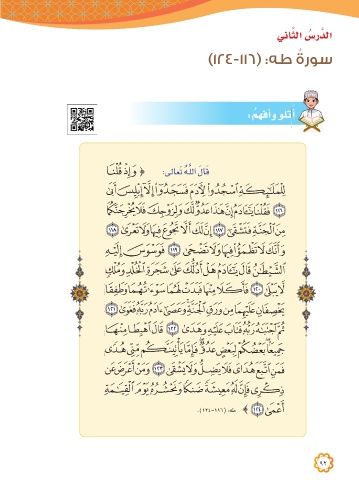 الدَّرسُ الثَّاني
سورةُ طه: (١١٦-١٢٤)
أَتلو وأفهمُ:
قالَ اللَّهُ تعالى: ﴿ وَإِذْ قُلْنَا
لِلْمَلَٰٓئِكَةِ ٱسْجُدُوا۟ لِـَٔادَمَ فَسَجَدُوٓا۟ إِلَّآ إِبْلِيسَ أَبَىٰ
﴿١١٦﴾ فَقُلْنَا يَٰٓـَٔادَمُ إِنَّ هَٰذَا عَدُوٌّ لَّكَ وَلِزَوْجِكَ فَلَا يُخْرِجَنَّكُمَا
مِنَ ٱلْجَنَّةِ فَتَشْقَىٰٓ ﴿١١٧﴾ إِنَّ لَكَ أَلَّا تَجُوعَ فِيهَا وَلَا تَعْرَىٰ ﴿١١٨﴾
وَأَنَّكَ لَا تَظْمَؤُا۟ فِيهَا وَلَا تَضْحَىٰ ﴿١١٩﴾ فَوَسْوَسَ إِلَيْهِ
ٱلشَّيْطَٰنُ قَالَ يَٰٓـَٔادَمُ هَلْ أَدُلُّكَ عَلَىٰ شَجَرَةِ ٱلْخُلْدِ وَمُلْكٍ
لَّا يَبْلَىٰ ﴿١٢٠﴾ فَأَكَلَا مِنْهَا فَبَدَتْ لَهُمَا سَوْءَٰتُهُمَا وَطَفِقَا
يَخْصِفَانِ عَلَيْهِمَا مِن وَرَقِ ٱلْجَنَّةِ وَعَصَىٰٓ ءَادَمُ رَبَّهُۥ فَغَوَىٰ ﴿١٢١﴾
ثُمَّ ٱجْتَبَٰهُ رَبُّهُۥ فَتَابَ عَلَيْهِ وَهَدَىٰ ﴿١٢٢﴾ قَالَ ٱهْبِطَا مِنْهَا
جَمِيعًۢا بَعْضُكُمْ لِبَعْضٍ عَدُوٌّ فَإِمَّا يَأْتِيَنَّكُم مِّنِّى هُدًى
فَمَنِ ٱتَّبَعَ هُدَاىَ فَلَا يَضِلُّ وَلَا يَشْقَىٰ ﴿١٢٣﴾ وَمَنْ أَعْرَضَ عَن
ذِكْرِى فَإِنَّ لَهُۥ مَعِيشَةً ضَنكًا وَنَحْشُرُهُۥ يَوْمَ ٱلْقِيَٰمَةِ
أَعْمَىٰ ﴿١٢٤﴾ ﴾ طه: (١١٦-١٢٤).
٩٢